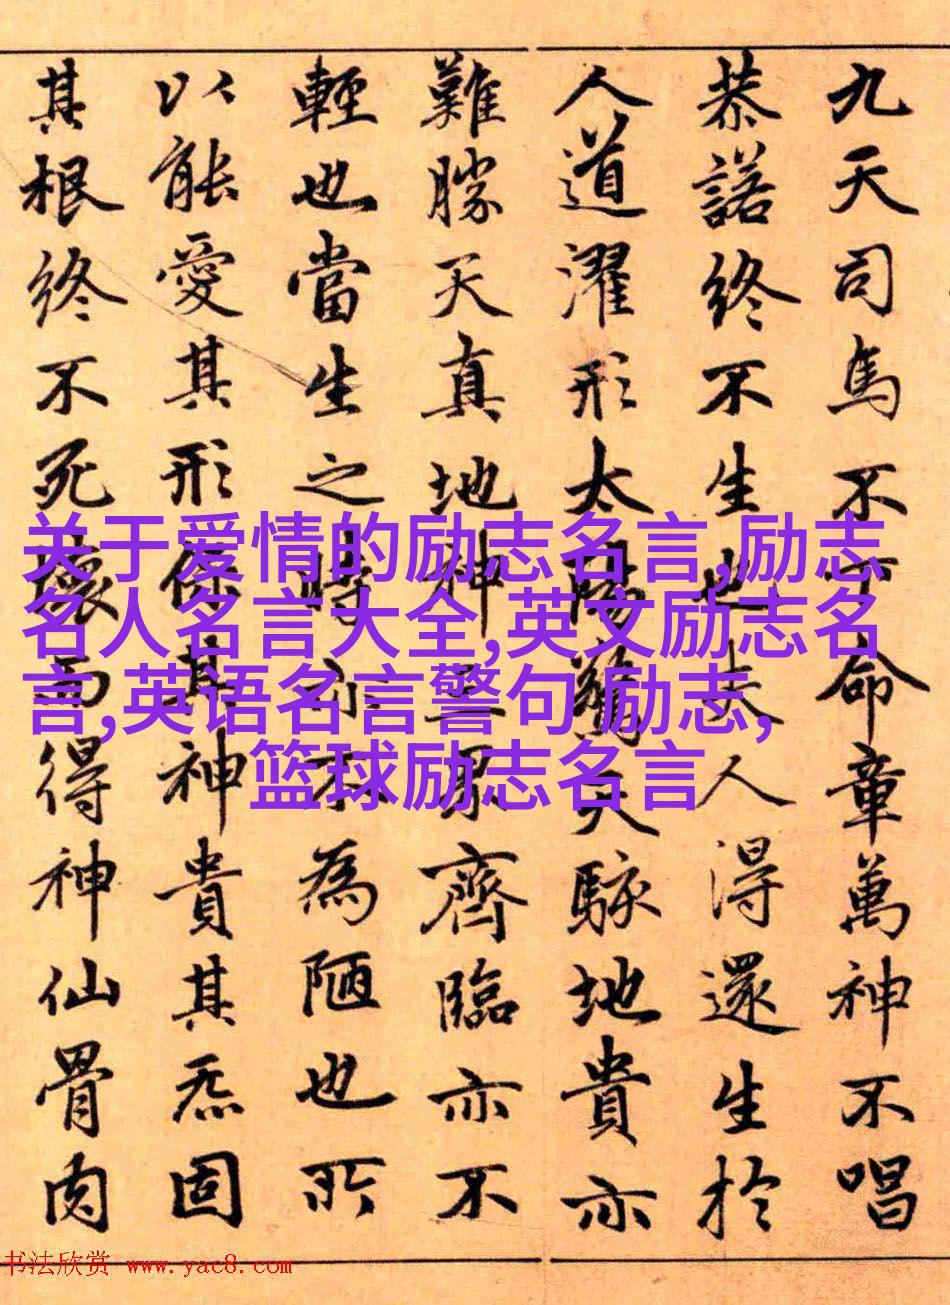 九天司馬不下命章萬神不唱
恭諾終不生也夫人得還生於
人道濯形太陽驚天駭地貴亦
難勝天真地神三界齊臨亦不
輕也當生之時亦不為陋也所
以能愛其形保其神貴其炁固
其根終不死壞而得神仙骨肉
关于爱情的励志名言,励志
名人名言大全,英文励志名
言,英语名言警句 励志,
篮球励志名言
书法欣赏 www.yac8.com